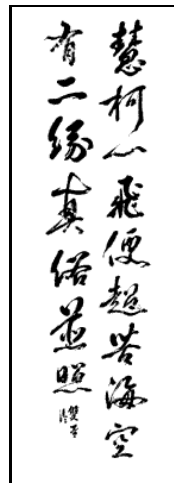 慧柯心飛便超苦海空
有二緣真俗並照